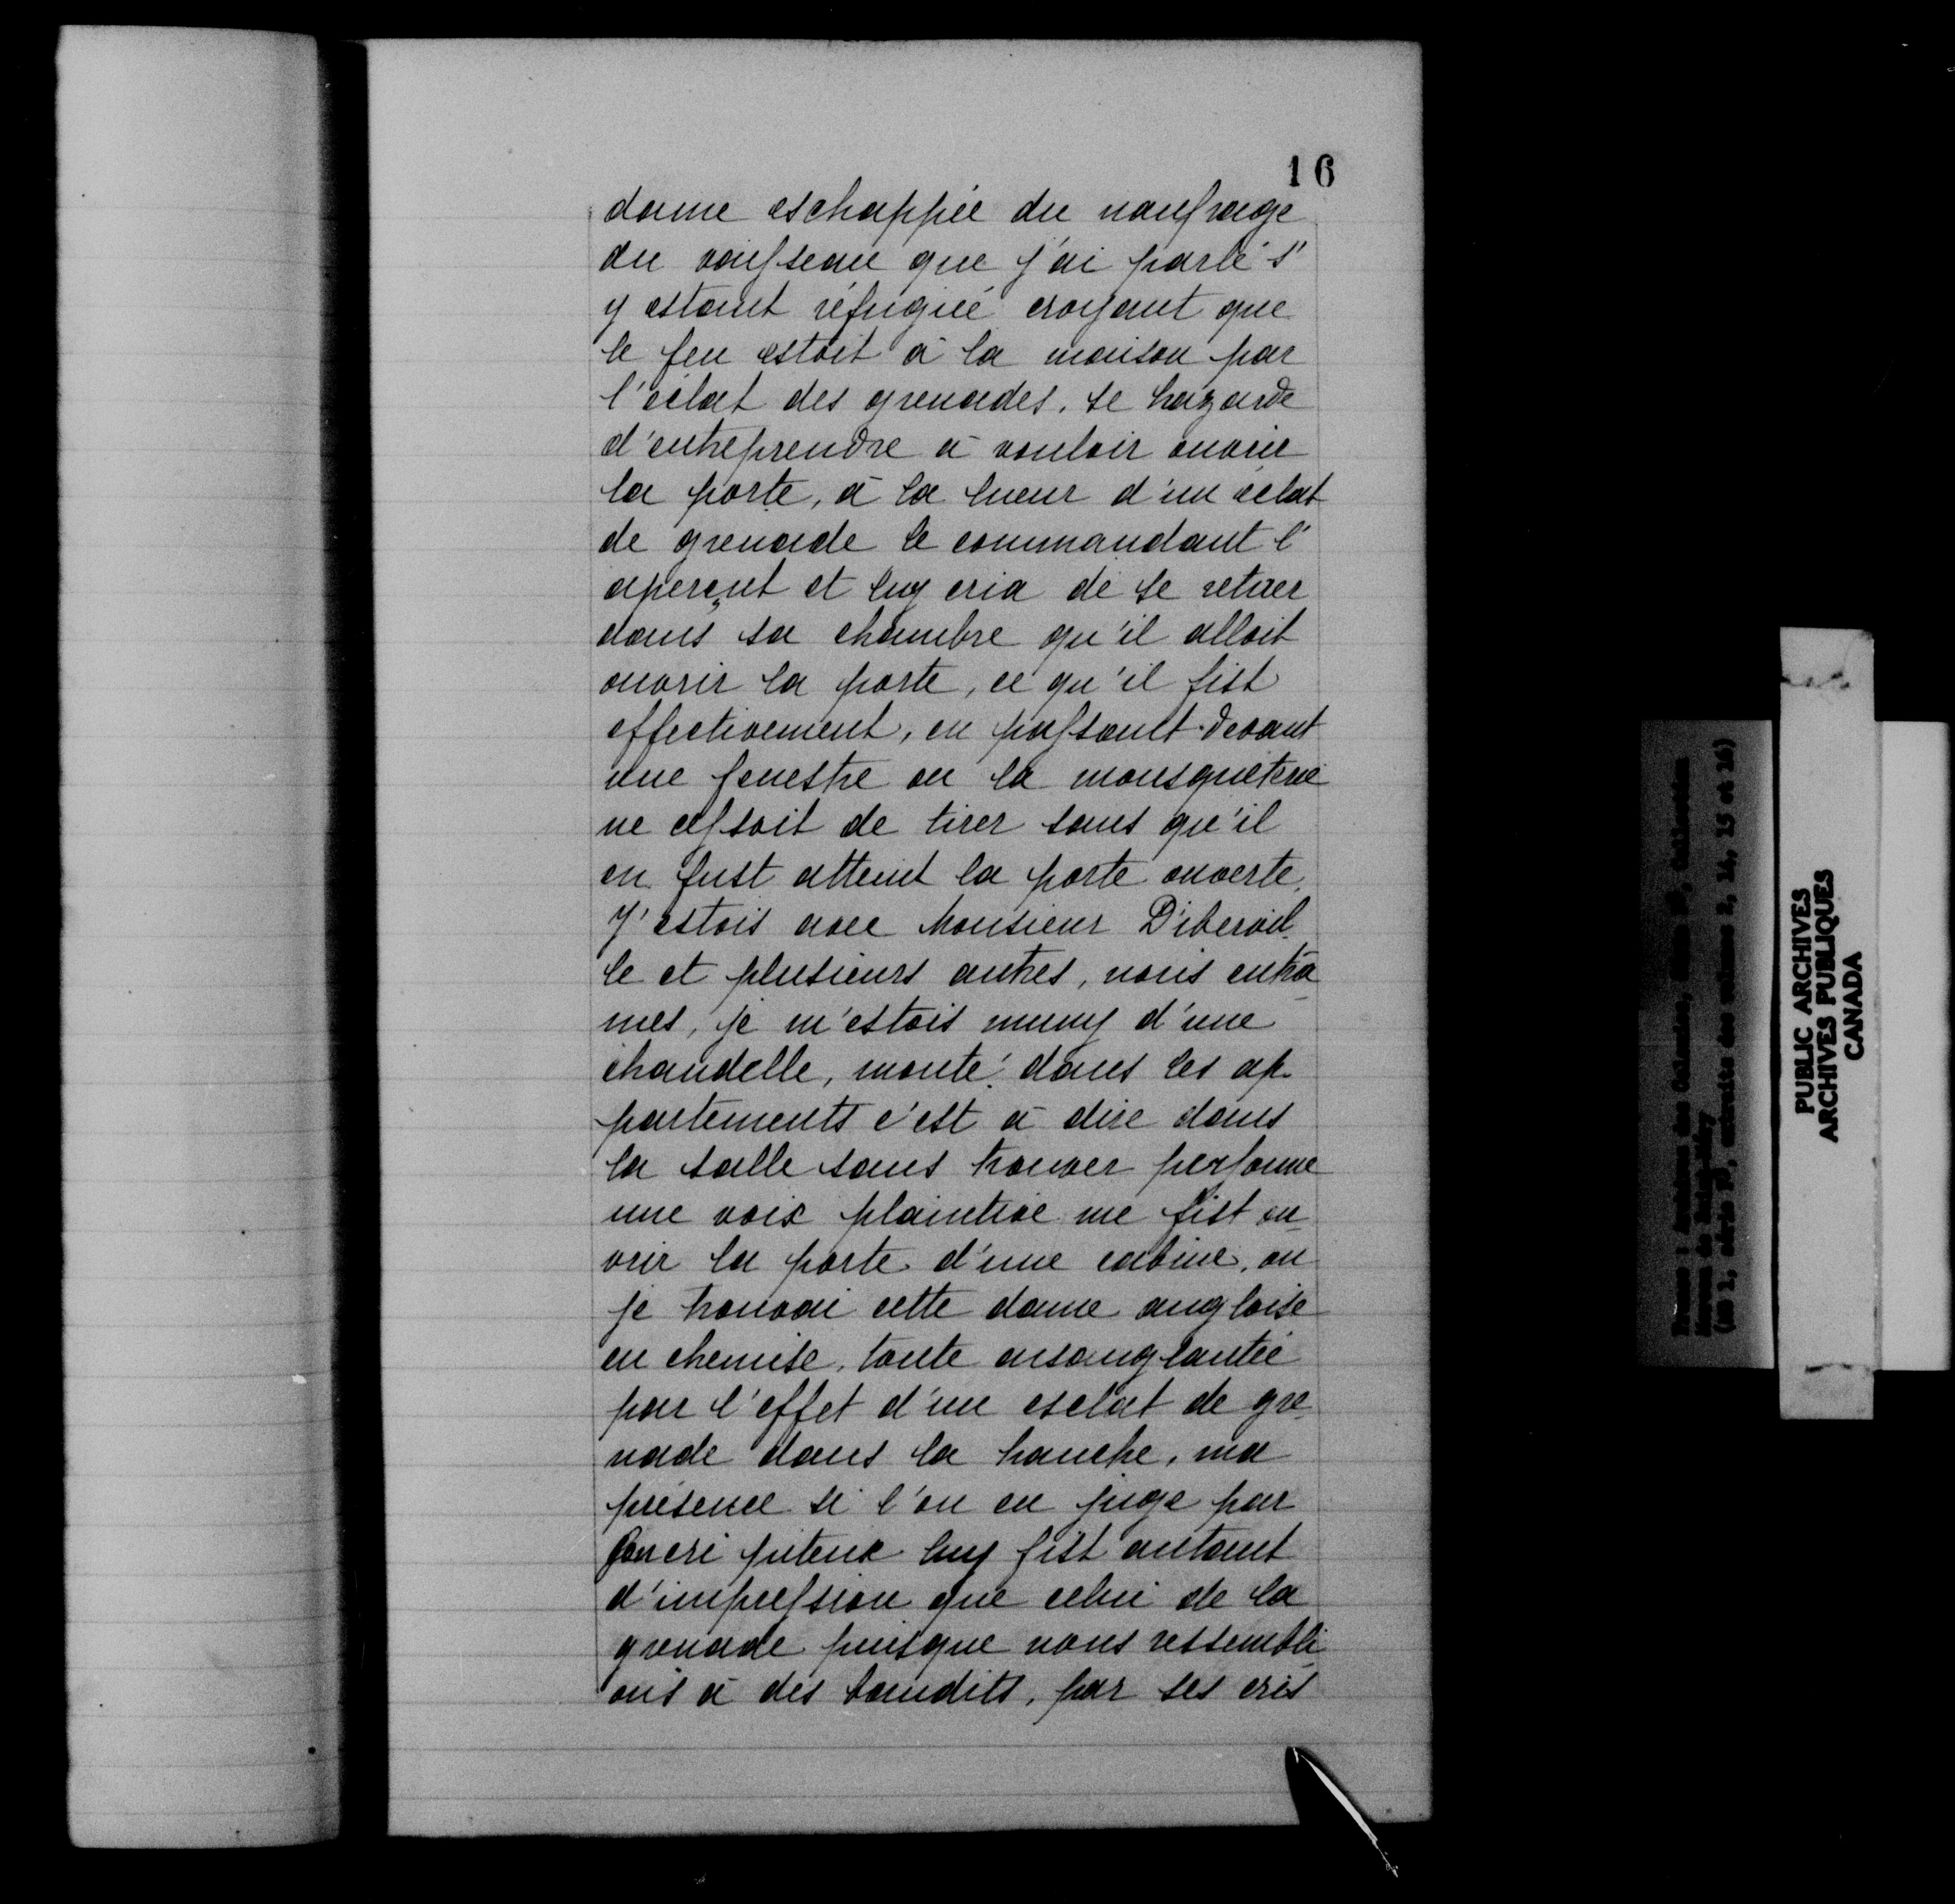 16
dame eschappée du naufrage
du vaisseau que j'ai parlé s'
y estant réfugiée croyant que
le feu estoit à la maison par
l'éclat des grenades, se hazarde
d'entreprendre à vouloir ouvrir
la porte, à la lueur d'un éclat
de grenade le commandant l'
aperçut et luy cria de se retirer
dans sa chambre qu'il alloit
ouvrir la porte, ce qu'il fist
effectivement, en passant devant
une fenestre ou la mousqueterie
ne cessoit de tirer sans qu'il
en fust atteint la porte ouverte.
J'estois avec Monsieur D'ibervil
le et plusieurs autres, nous entrâ
mes, je m'estois muny d'une
chandelle, monté dans les ap-
partements c'est à dire dans
la salle sans trouver personne
une voix plaintive me fist ou
vrir la porte d'une cabine, ou
je trouvai cette dame angloise
en chemise, toute ensanglantée
par l'effet d'un esclat de gre
nade dans la hanche, ma
présence si l'on en juge par
son cri piteux luy fist autant
d'impression que celui de la
grenade puisque nous ressembli
ons à des bandits, par ses cris
PUBLIC ARCHIVES
ARCHIVES PUBLIQUES
CANADA